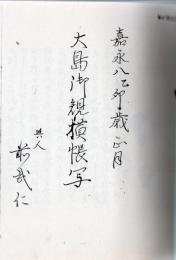 嘉永八乙卯歳正月
大島御規模帳写
與人
前武仁